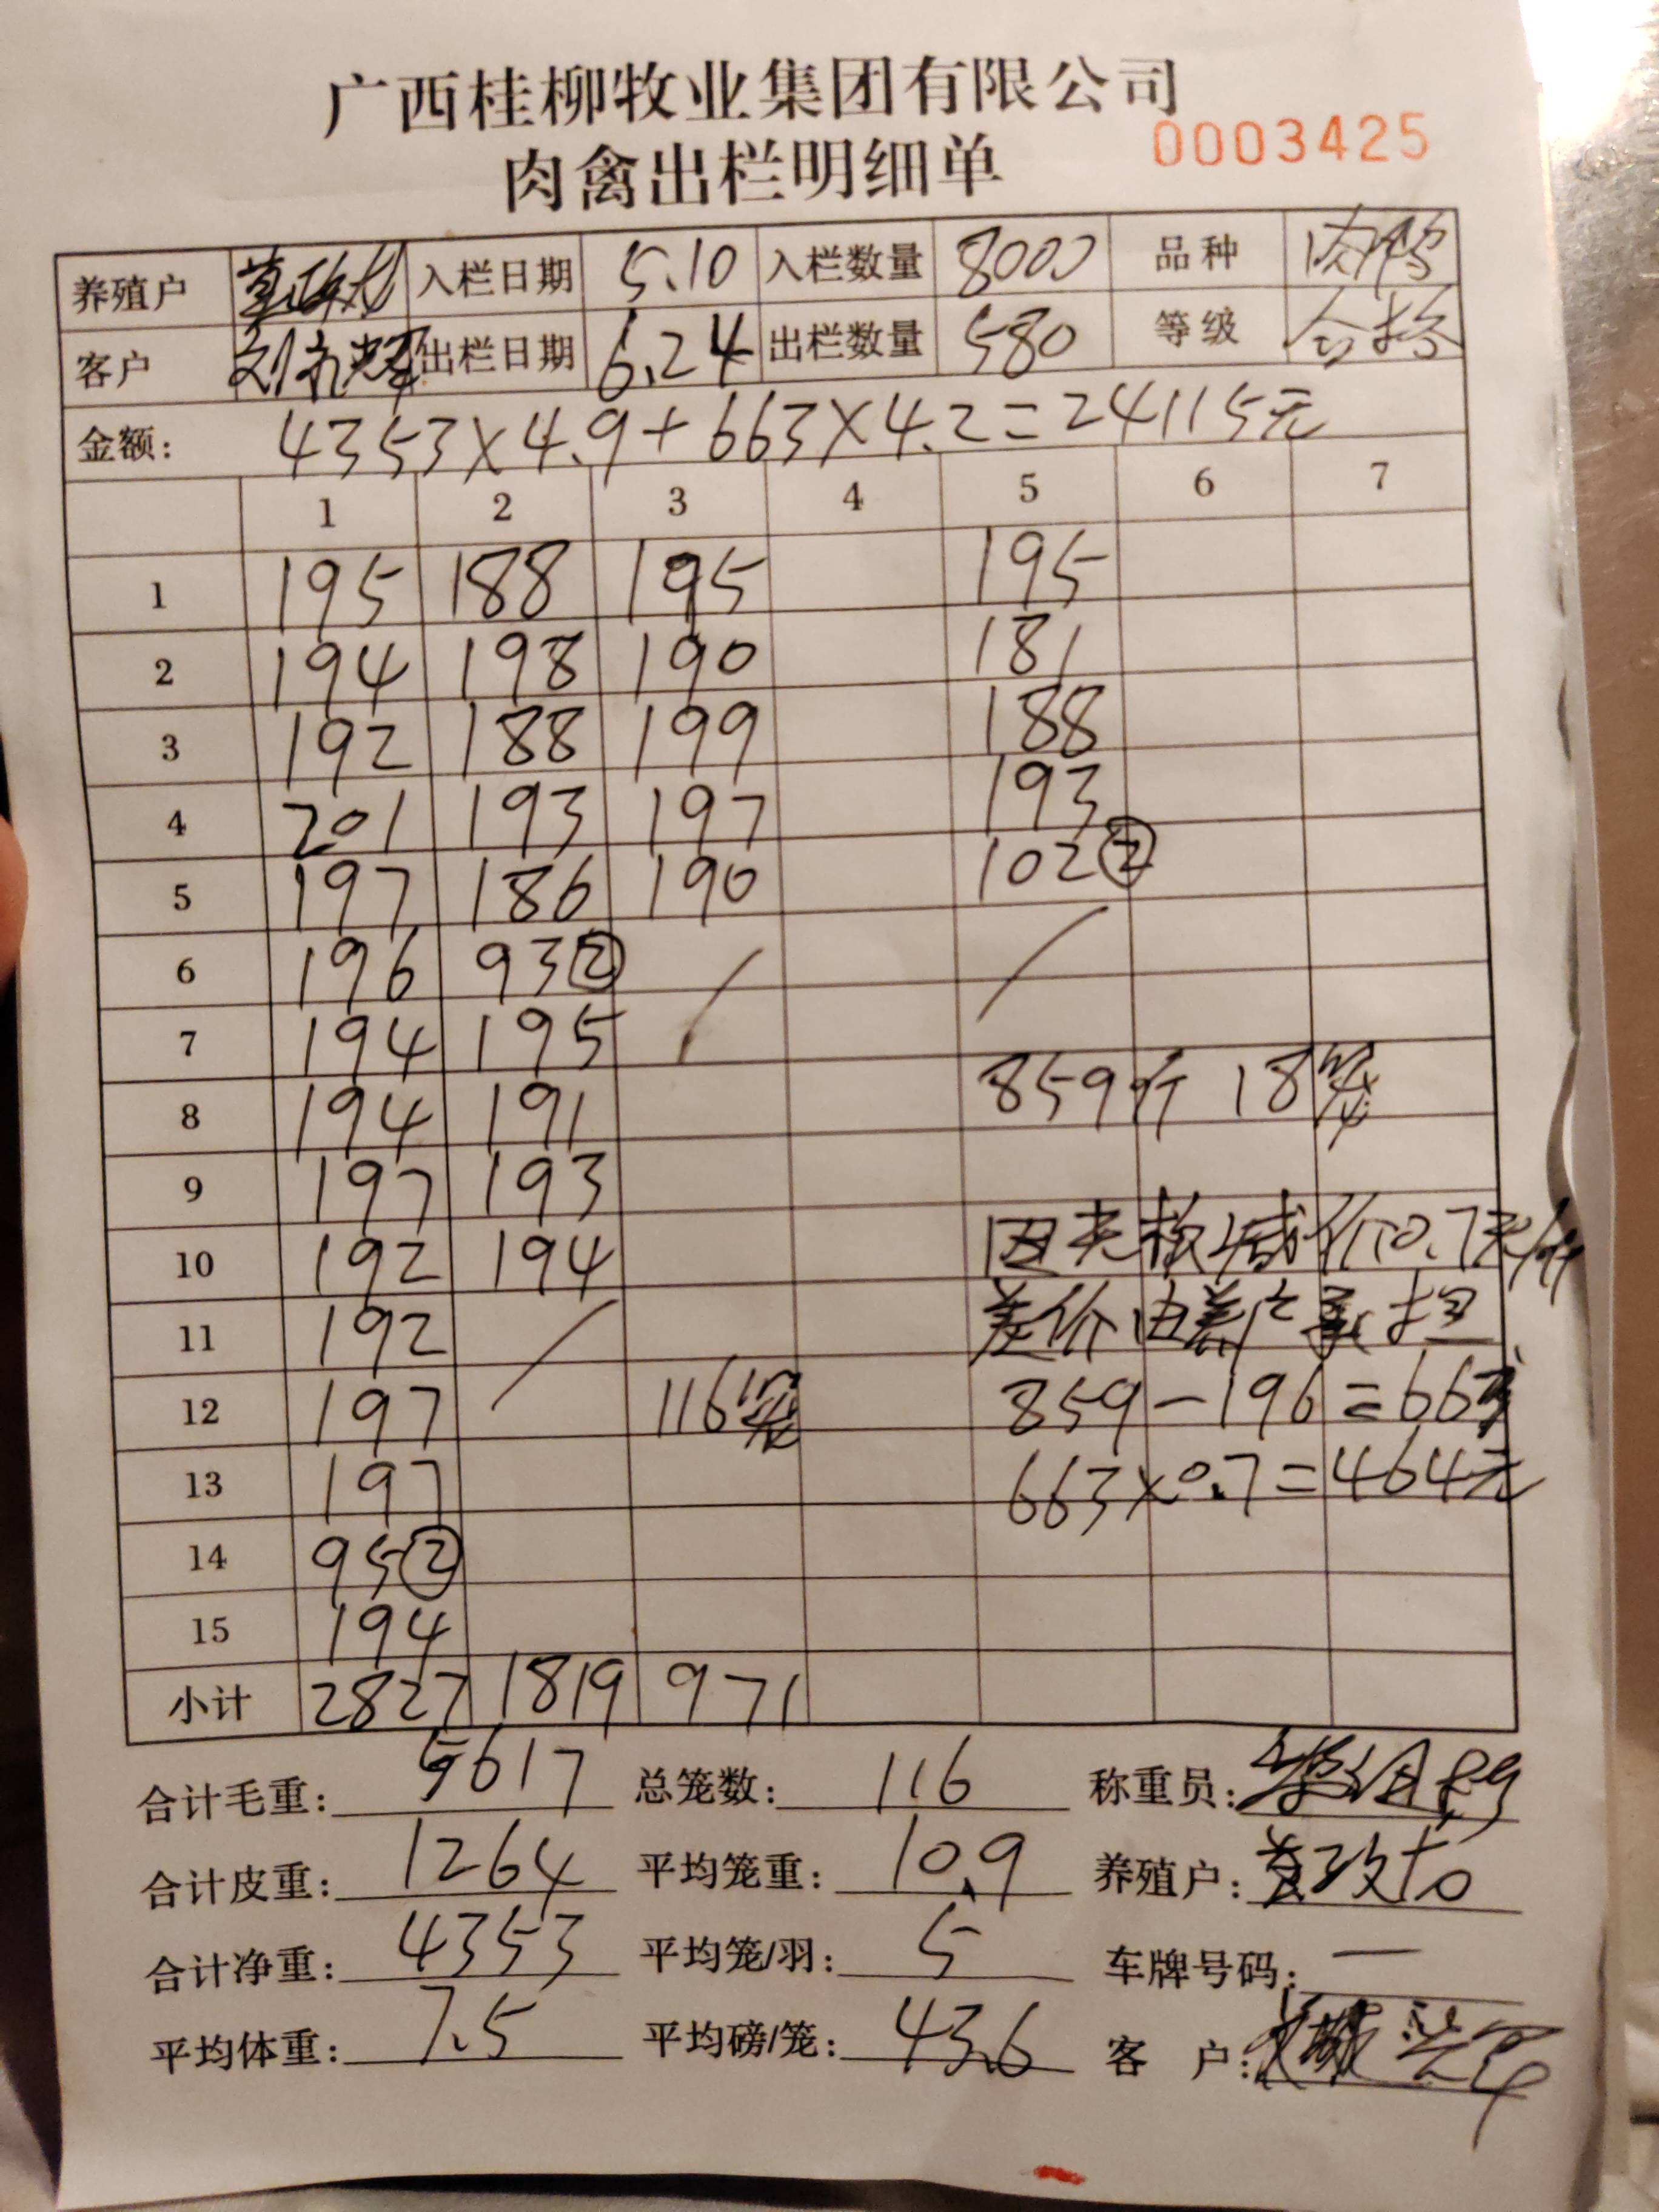 广西桂柳牧业集团有限公司
肉禽出栏明细单 0003425
养殖户 入栏日期 5.10 入栏数量 8000 品种 肉鸭
客户 出栏日期 6.24 出栏数量 580 等级 合格
金额: 4353×4.9+663×4.2=24115元
1 2 3 4 5 6 7
1 195 188 195 195
2 194 198 190 181
3 192 188 199 188
4 201 193 197 193
5 197 186 190 102②
6 196 93②
7 194 195
8 194 191 859斤 18笼
9 197 193
10 192 194 因 减价0.7元/斤
11 192 差价由养户承担
12 197 116笼 859-196=663
13 197 663×0.7=464元
14 95②
15 194
小计 2827 1819 971
合计毛重: 5617 总笼数: 116 称重员:
合计皮重: 1264 平均笼重: 10.9 养殖户:
合计净重: 4353 平均笼/羽: 5 车牌号码: 一
平均体重: 7.5 平均磅/笼: 43.6 客 户: